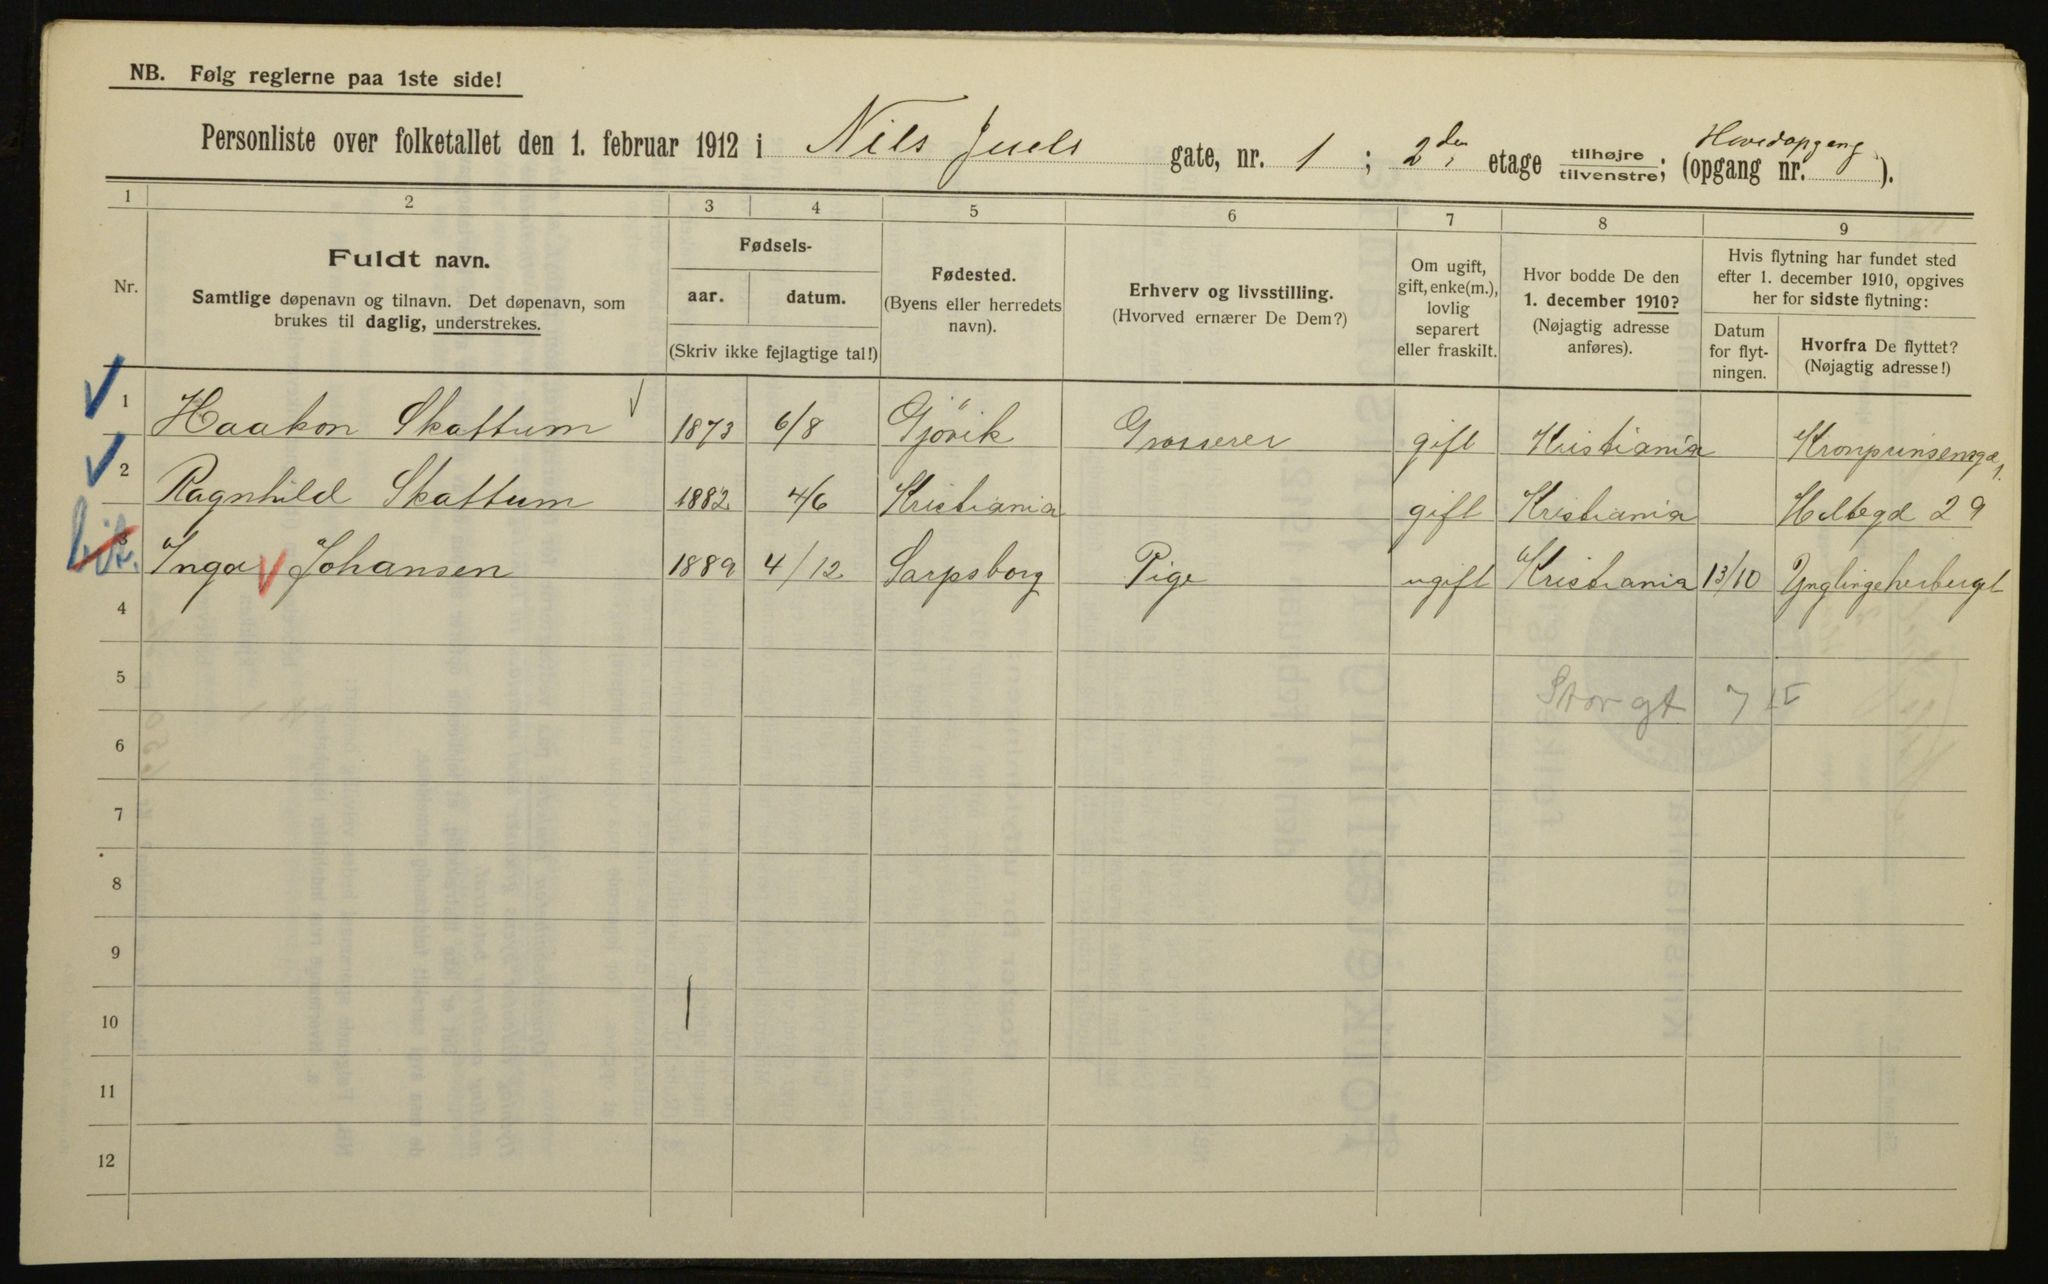 NB. Følg reglerne paa 1ste side!
Personliste over folketallet den 1. februar 1912 i Nils Juels gate, nr. 1 ; 2den etage tilhøjre tilvenstre; (opgang nr. Hovedopgang).
1 2 3 4 5 6 7 8 9
Nr.
Fuldt navn.
Samtlige døpenavn og tilnavn. Det døpenavn, som
brukes til daglig, understrekes.
Fødsels-
aar. datum.
(Skriv ikke fejlagtige tal!)
Fødested.
(Byens eller herredets
navn).
Erhverv og livsstilling.
(Hvorved ernærer De Dem?)
Om ugift,
gift, enke(m.),
lovlig
separert
eller fraskilt.
Hvor bodde De den
1. december 1910?
(Nøjagtig adresse
anføres).
Hvis flytning har fundet sted
efter 1. december 1910, opgives
her for sidste flytning:
Datum
for flyt-
ningen.
Hvorfra De flyttet?
(Nøjagtig adresse!)
1 Haakon Skattum 1873 6/8 Gjövik Grosserer gift Kristiania Kronprinsensgd. 1.
2 Ragnhild Skattum 1882 4/6 Kristiania gift Kristiania 29
3 Inga Johansen 1889 4/12 Sarpsborg Pige ugift Kristiania 13/10 Ynglingeherberget
4
5 Storgt 7
6
7
8
9
10
11
12